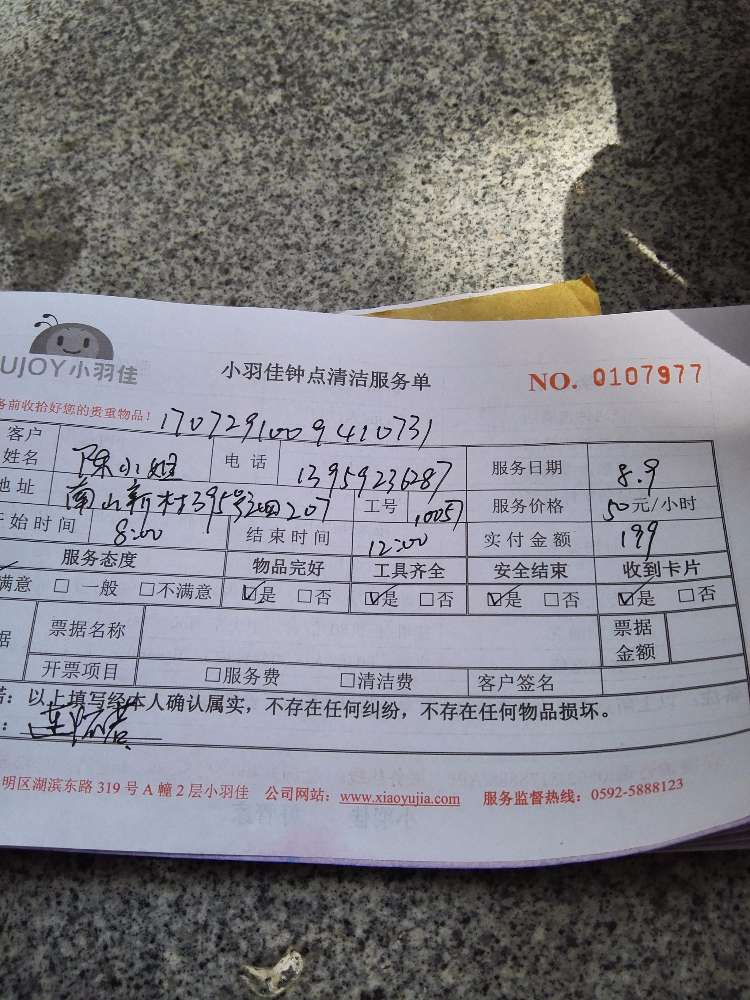 UJOY小羽佳 小羽佳钟点清洁服务单 NO. 0107977
务前收拾好您的贵重物品! 1707291009410731
客户姓名 陈小姐 电话 13959236287 服务日期 8.9
地址 南山新村395号 207 工号 10057 服务价格 50元/小时
开始时间 8:00 结束时间 12:00 实付金额 199
服务态度 物品完好 工具齐全 安全结束 收到卡片
满意 □ 一般 □不满意 ☑是 □否 ☑是 □否 ☑是 □否 ☑是 □否
据 票据名称 票据金额
开票项目 □服务费 □清洁费 客户签名
诺: 以上填写经本人确认属实,不存在任何纠纷,不存在任何物品损坏。
:
明区湖滨东路 319 号 A 幢 2 层小羽佳 公司网站: www.xiaoyujia.com 服务监督热线: 0592-5888123